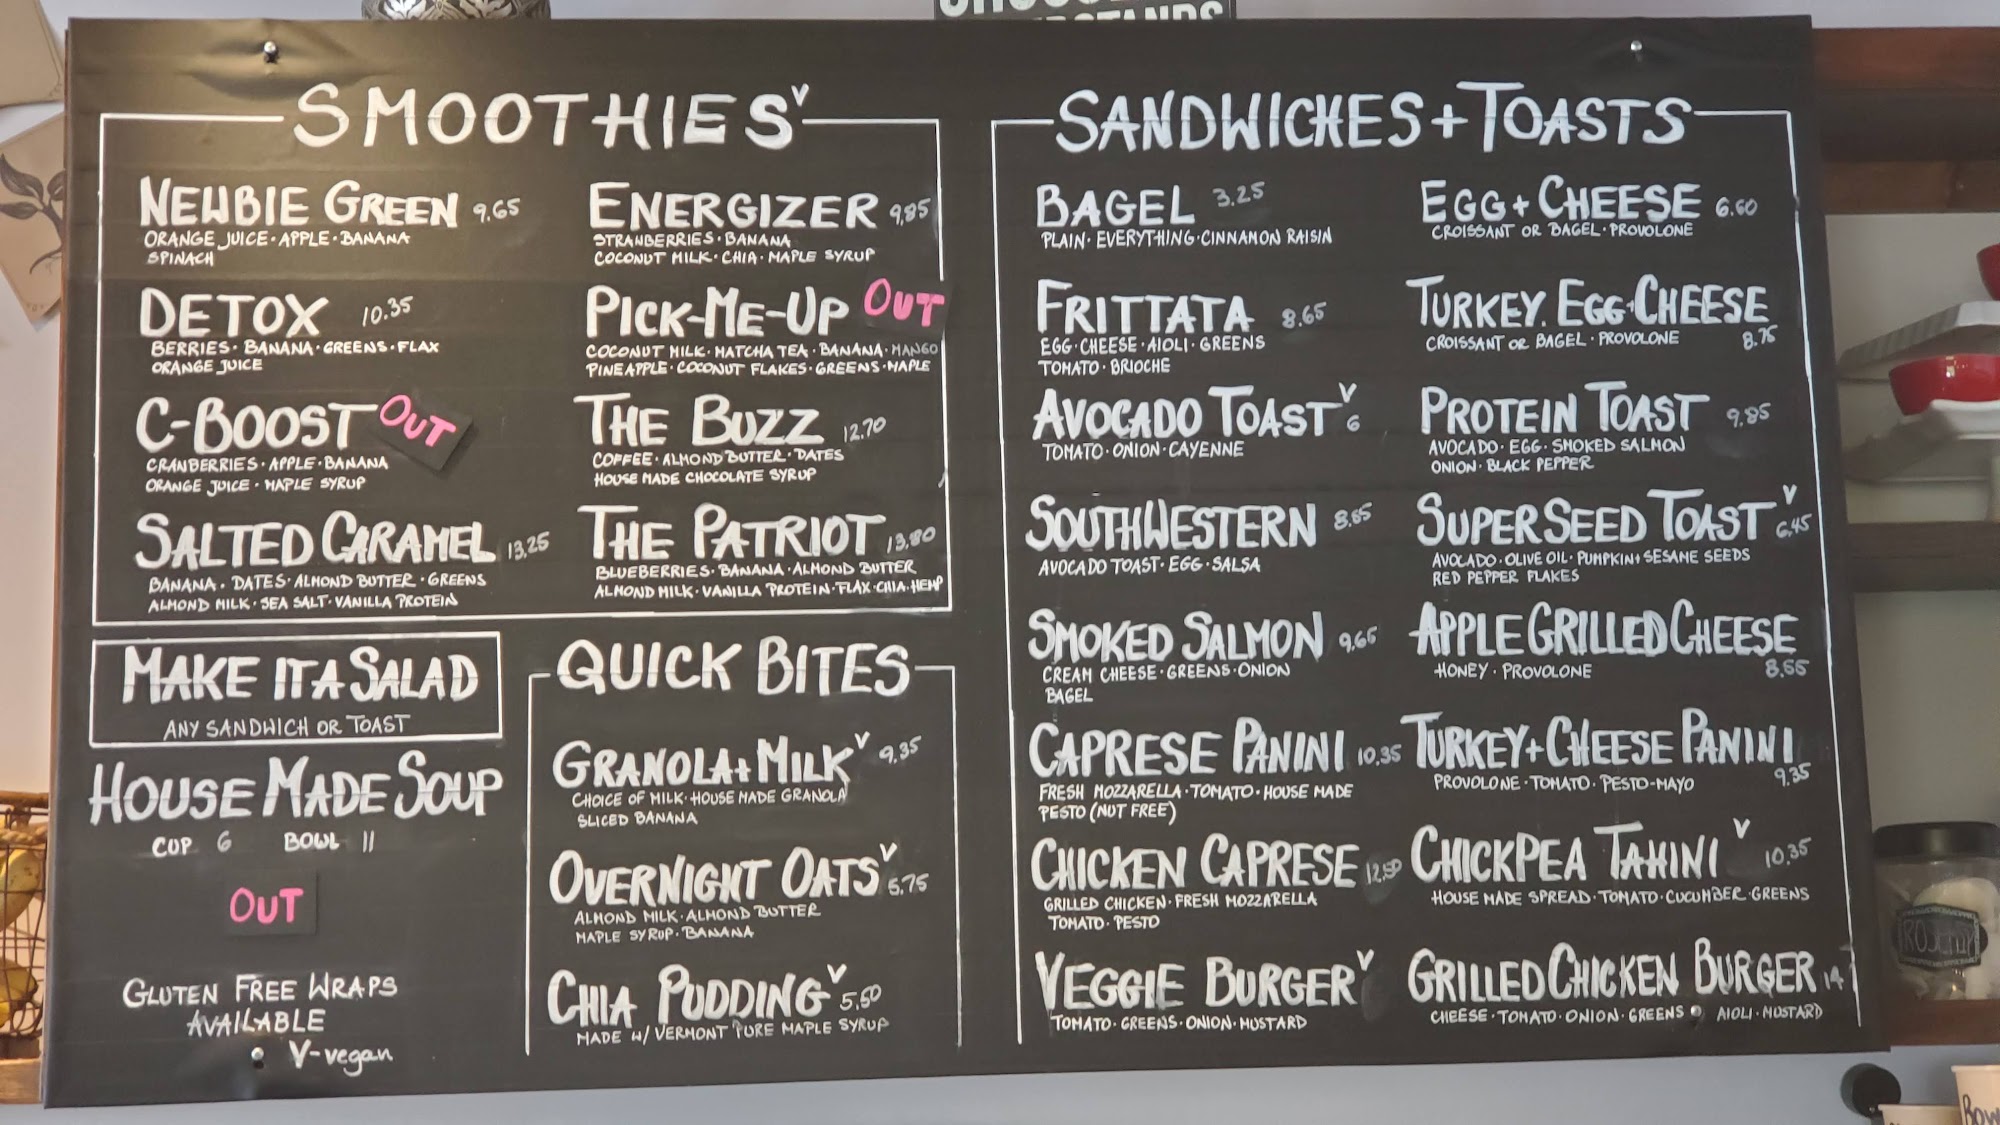 SMOOTHIES V
NEWBIE GREEN 9.65
ORANGE JUICE · APPLE · BANANA
SPINACH
DETOX 10.35
BERRIES · BANANA · GREENS · FLAX
ORANGE JUICE
C-BOOST OUT
CRANBERRIES · APPLE · BANANA
ORANGE JUICE · MAPLE SYRUP
SALTED CARAMEL 13.25
BANANA · DATES · ALMOND BUTTER · GREENS
ALMOND MILK · SEA SALT · VANILLA PROTEIN
ENERGIZER 9.85
STRAWBERRIES · BANANA
COCONUT MILK · CHIA · MAPLE SYRUP
PICK-ME-UP OUT
COCONUT MILK · MATCHA TEA · BANANA · MANGO
PINEAPPLE · COCONUT FLAKES · GREENS · MAPLE
THE BUZZ 12.70
COFFEE · ALMOND BUTTER · DATES
HOUSE MADE CHOCOLATE SYRUP
THE PATRIOT 13.80
BLUEBERRIES · BANANA · ALMOND BUTTER
ALMOND MILK · VANILLA PROTEIN · FLAX · CHIA · HEMP
MAKE IT A SALAD
ANY SANDWICH OR TOAST
HOUSE MADE SOUP
CUP 6 BOWL 11
OUT
GLUTEN FREE WRAPS
AVAILABLE
V-vegan
QUICK BITES
GRANOLA + MILK V 9.35
CHOICE OF MILK · HOUSE MADE GRANOLA
SLICED BANANA
OVERNIGHT OATS V 5.75
ALMOND MILK · ALMOND BUTTER
MAPLE SYRUP · BANANA
CHIA PUDDING V 5.50
MADE W/ VERMONT PURE MAPLE SYRUP
SANDWICHES + TOASTS
BAGEL 3.25
PLAIN · EVERYTHING · CINNAMON RAISIN
FRITTATA 8.65
EGG · CHEESE · AIOLI · GREENS
TOMATO · BRIOCHE
AVOCADO TOAST V 6
TOMATO · ONION · CAYENNE
SOUTHWESTERN
AVOCADO TOAST · EGG · SALSA
SMOKED SALMON 9.65
CREAM CHEESE · GREENS · ONION
BAGEL
CAPRESE PANINI 10.35
FRESH MOZZARELLA · TOMATO · HOUSE MADE
PESTO (NUT FREE)
CHICKEN CAPRESE 12.50
GRILLED CHICKEN · FRESH MOZZARELLA
TOMATO · PESTO
VEGGIE BURGER V
TOMATO · GREENS · ONION · MUSTARD
EGG + CHEESE
CROISSANT OR BAGEL · PROVOLONE
TURKEY, EGG + CHEESE
CROISSANT OR BAGEL · PROVOLONE 8.75
PROTEIN TOAST 9.85
AVOCADO · EGG · SMOKED SALMON
ONION · BLACK PEPPER
SUPER SEED TOAST V 6.45
AVOCADO · OLIVE OIL · PUMPKIN + SESAME SEEDS
RED PEPPER FLAKES
APPLE GRILLED CHEESE
HONEY · PROVOLONE
TURKEY + CHEESE PANINI
PROVOLONE · TOMATO · PESTO-MAYO 9.35
CHICKPEA TAHINI V 10.35
HOUSE MADE SPREAD · TOMATO · CUCUMBER · GREENS
GRILLED CHICKEN BURGER 14
CHEESE · TOMATO · ONION · GREENS · AIOLI · MUSTARD